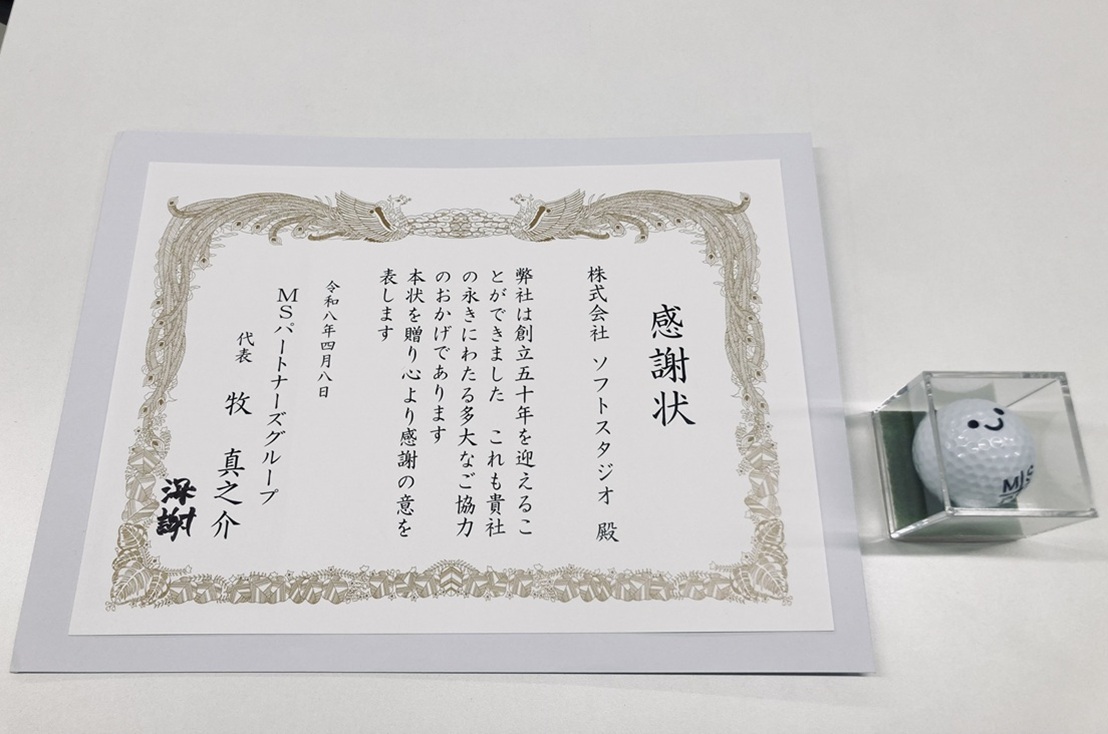 感謝状
株式会社 ソフトスタジオ 殿
弊社は創立五十年を迎えるこ
とができました これも貴社
の永きにわたる多大なご協力
のおかげであります
本状を贈り心より感謝の意を
表します
令和八年四月八日
MSパートナーズグループ
代表 牧 真之介
深謝